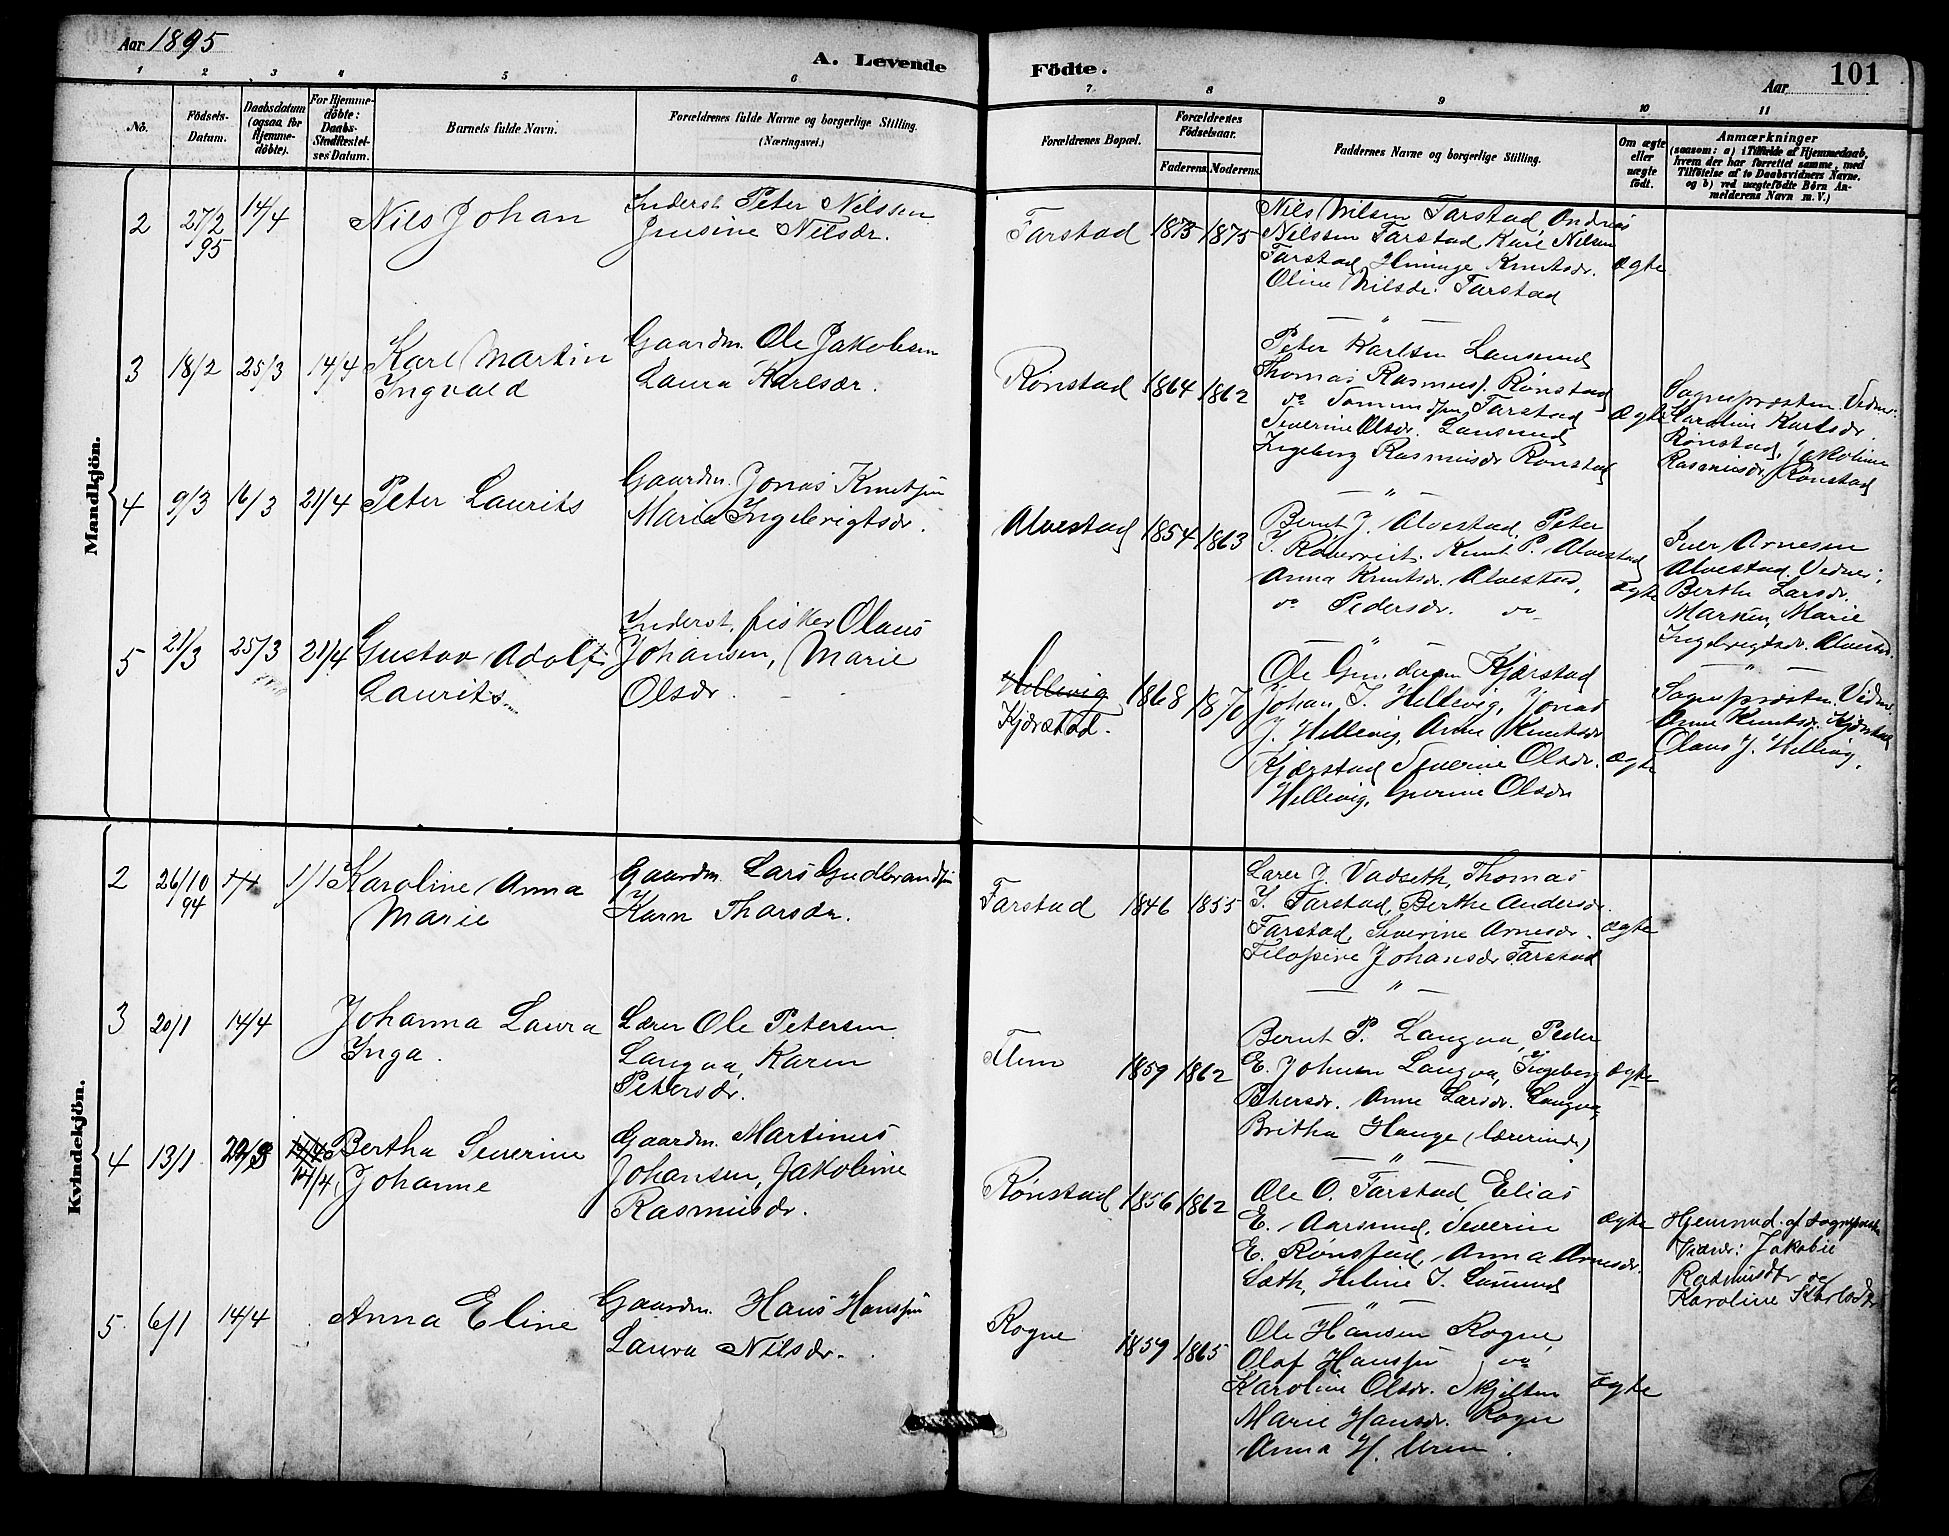 Aar 1895
A. Levende Födte.
Aar
101
1 2 3 4 5 6 7 8 9 10 11
No.
Födsels-
Datum.
Daabsdatum
(ogsaa for
Hjemme-
döbte).
For Hjemme-
döbte:
Daabs-
Stadfæstel-
ses Datum.
Barnets fulde Navn.
Forældrenes fulde Navne og borgerlige Stilling.
(Næringsvei.)
Forældrenes Bopæl.
Forældrenes
Födselsaar.
Faderens. Moderens.
Faddernes Navne og borgerlige Stilling.
Om ægte
eller
uægte
födt.
Anmærkninger
(saasom: a) i Tilfælde af Hjemmedaab,
hvem der har forrettet samme, med
Tilföielse af to Daabsvidners Navne,
og b) ved uægtefödte Börn An-
melderens Navn m. V.)
Mandkjön.
2
27/2
95
14/4
Nils Johan
Inderst Peter Nilssen
Jensine Nilsdr.
Farstad
1873
1875
Nils Nilsen Farstad, Andreas
Nilssen Farstad, Karl Nilsen
Farstad, Knutsdr.
Oline Nilsdr. Farstad
ægte
— " —
3
18/2
25/3
14/4
Karl Martin
Ingvald
Gaardm. Ole Jakobsen
Laura Karlsdr.
Rönstad
1864
1862
Peter Karlsen Lausund
Thomas Rasmus. Rönstad
do Farstad
Severine Olsdr. Lausund
Ingeborg Rasmusdr Rönstad
ægte
Sognepræsten. Vidner:
Karoline Karlsdr.
Rönstad, Jakoline
Rasmusdr. Rönstad
— " —
4
9/3
16/3
21/4
Peter Laurits
Gaardm. Jonas Knutsen
Marie Ingebrigtsdr.
Alvestad
1854
1863
Bernt J. Alvestad, Peter
J. Knut P. Alvestad
Anna Knutsdr. Alvestad,
do Pedersdr. do
ægte
Iver Arnesen
Alvestad. Vidner:
Berthe Larsdr.
Marie
Ingebrigtsdr. Alvestad.
— " —
5
21/3
25/3
21/4
Gustav Adolf
Laurits
Inderst, fisker Olaus
Johansen, Marie
Olsdr.
Hellevig
Kjærstad.
1868
1870
Ole Gundersen Kjærstad
Johan J. Hellevig, Jonas
J. Hellevig, Anne Knutsdr
Kjærstad Severine Olsdr.
Hellevig, Gurine Olsdr
ægte
Sognepræsten. Vidner
Anne Knutsdr. Kjærstad
Olaus J. Hellevig.
Kvindekjön.
2
26/10
94
1/1
Karoline Anna
Marie
Gaardm. Lars Gudbrandsen
Karn Tharsdr.
Farstad
1846
1855
J. Vadseth, Thomas
J. Farstad, Berthe Andersdr.
Farstad, Severine Arnesdr.
Johansdr Farstad
ægte
— " —
3
20/1
14/4
Johanna Laura
Inga.
Lærer Ole Petersen
Langva, Karen
Petersdr.
Flem
1859
1862
Bernt P. Langva, Peder
E. Johnsen Langva, Ingeborg
Petersdr. Anne Larsdr. Langva,
Britha Hauge (lærerinde)
ægte
— " —
4
13/1
14/4
Bertha Severine
Johanne
Gaardm. Martinus
Johansen, Jakoline
Rasmusdr.
Rönstad
1856
1862
Ole O. Farstad, Elias
E. Aarsund, Severin
E. Rönstad, Anna Arnesdr.
Sæth, Heline J. Lausund
ægte
Hjemmed. af Sognepræsten
Vidner: Jakobie
Rasmusdtr og
Karoline Karlsdtr
— " —
5
6/1
14/4
Anna Eline
Gaardm. Hans Hanssen
Laura Nilsdr.
Rogne
1859
1865
Ole Hansen Rogne,
Olaf Hanssen do
Karoline Olsdr. Skjelten
Marie Hansdr. Rogne
Anna H. Uren.
ægte